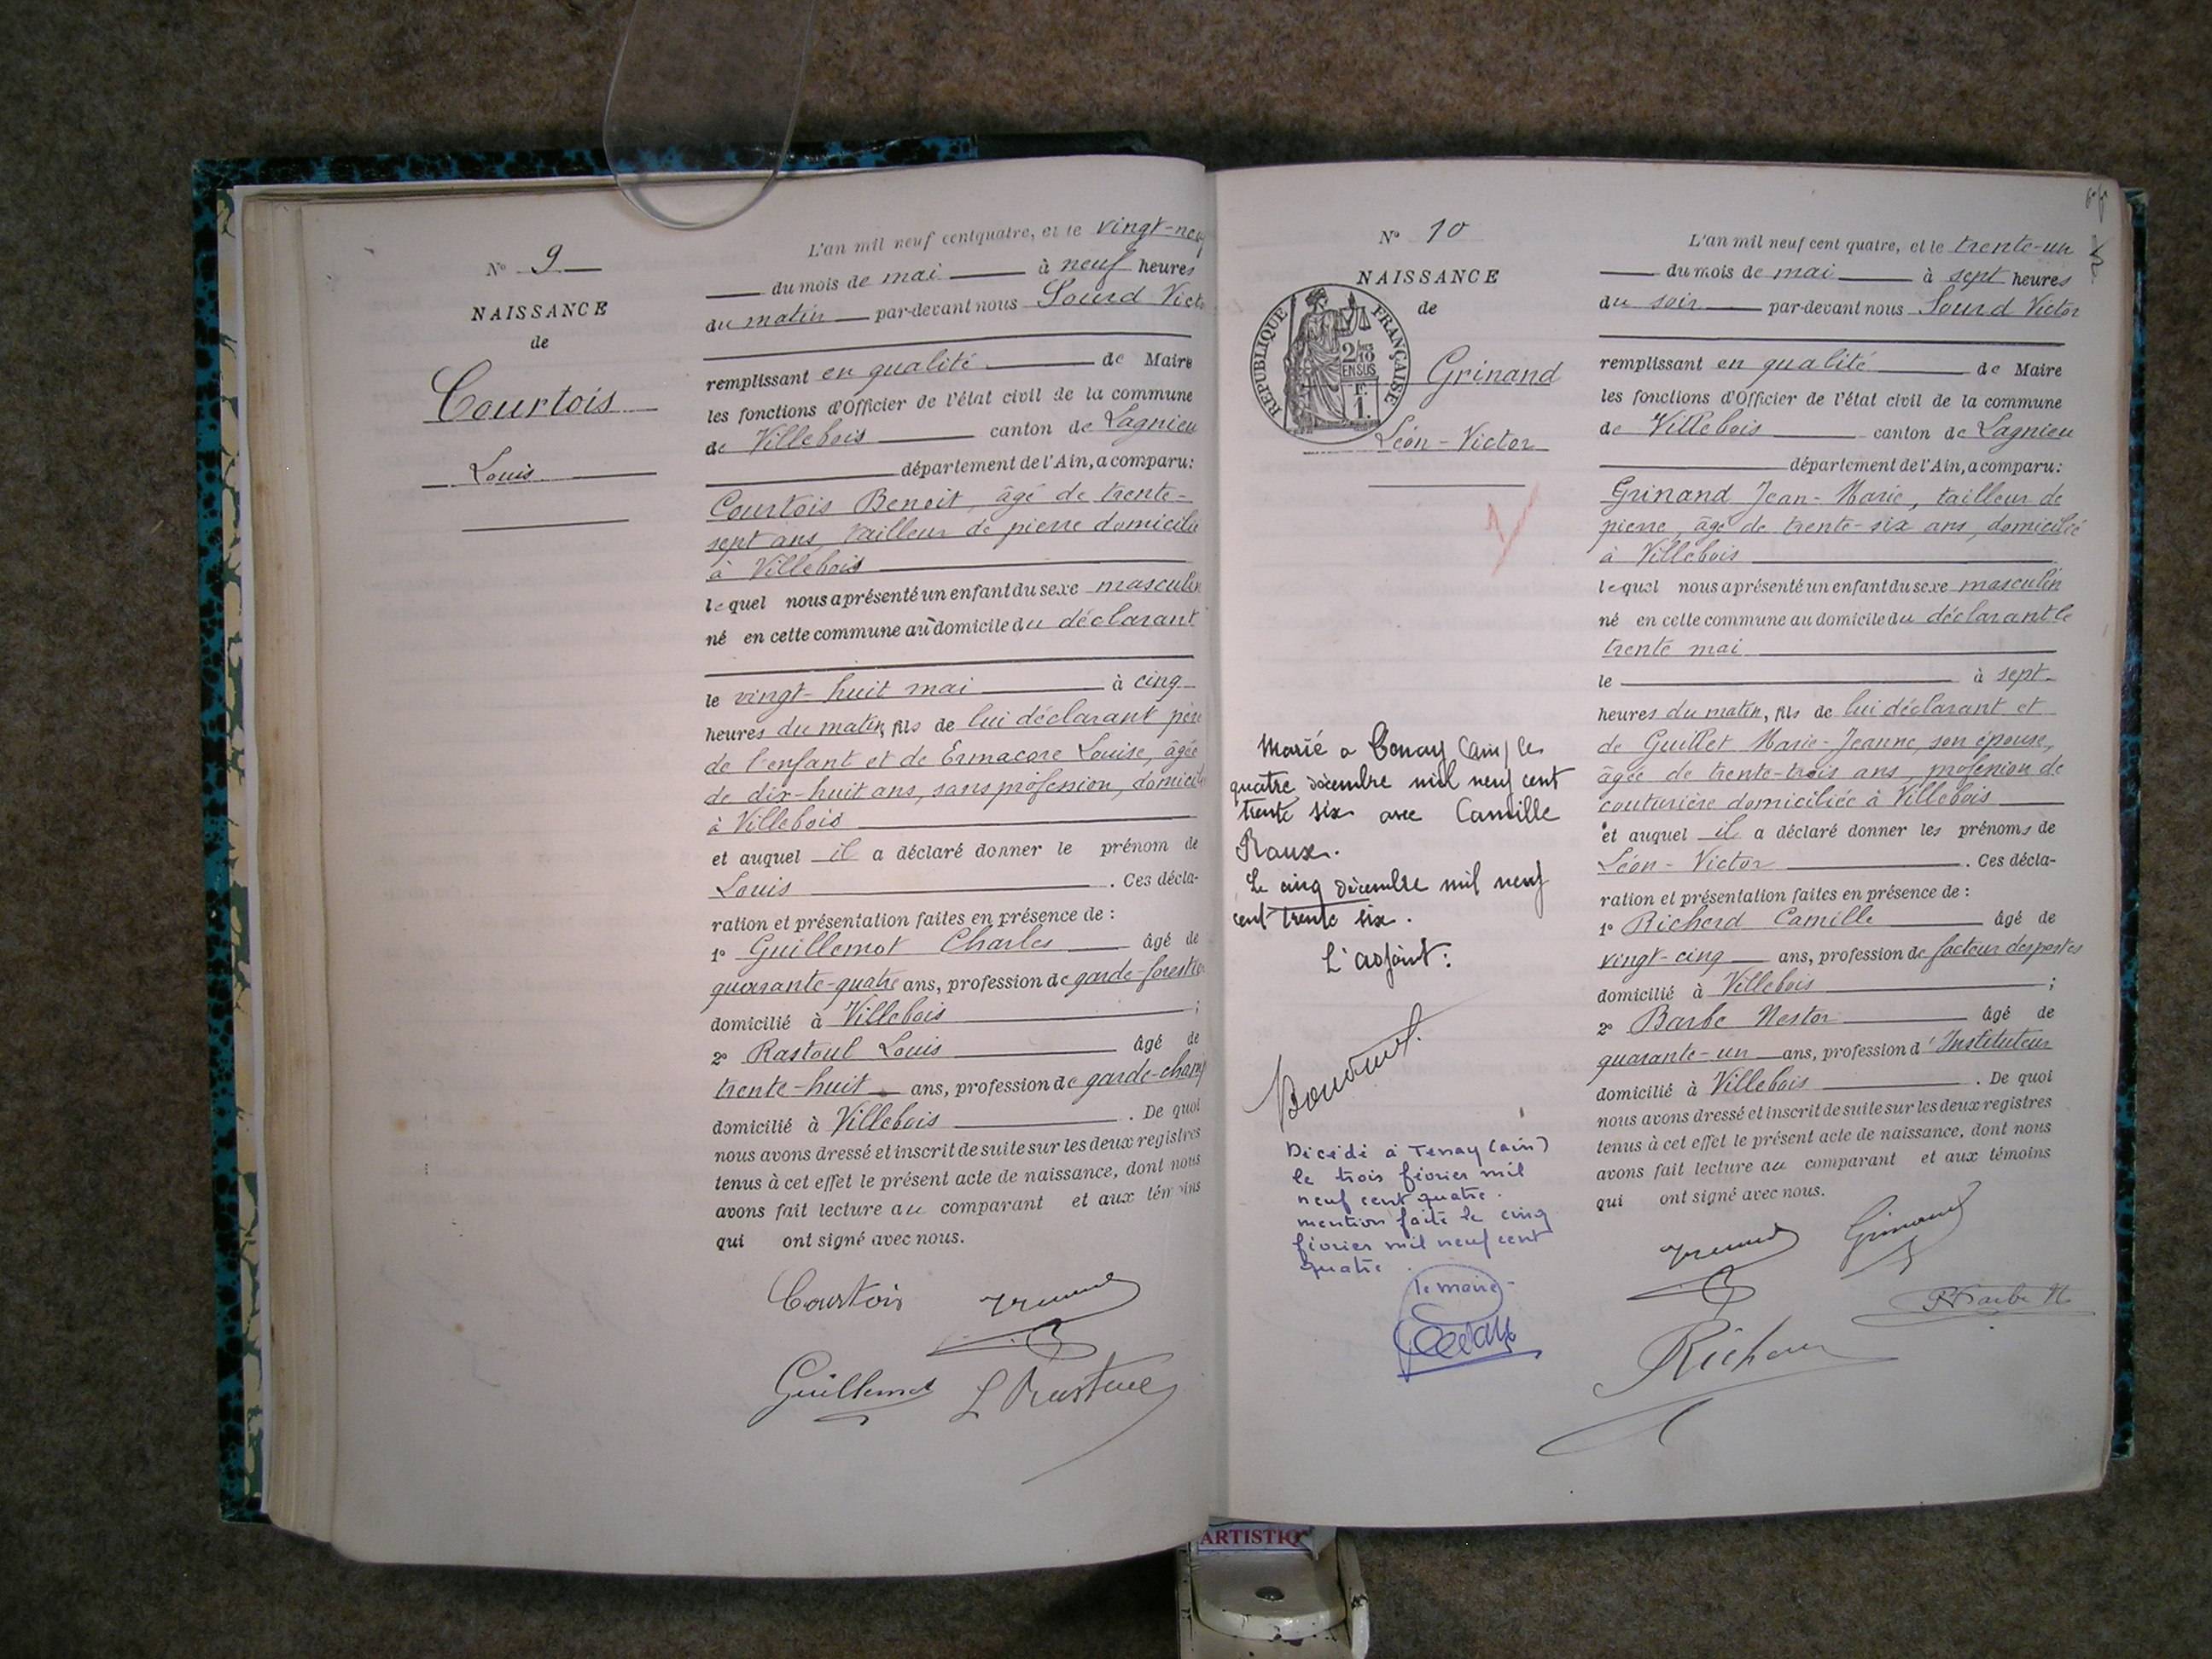 N° 9
NAISSANCE
de
Courtois
Louis
L'an mil neuf cent quatre, et le vingt-neuf
du mois de mai à neuf heures
du matin par-devant nous Sourd Victor
remplissant en qualité de Maire
les fonctions d'Officier de l'état civil de la commune
de Villebois canton de Lagnieu
département de l'Ain, a comparu:
Courtois Benoit, âgé de trente-
sept ans, tailleur de pierre domicilié
à Villebois
lequel nous a présenté un enfant du sexe masculin
né en cette commune au domicile du déclarant
le vingt-huit mai à cinq
heures du matin, fils de lui déclarant père
de l'enfant et de Ermacore Louise, âgée
de dix-huit ans, sans profession, domicili
à Villebois
et auquel il a déclaré donner le prénom de
Louis . Ces décla-
ration et présentation faites en présence de :
1° Guillemot Charles âgé de
quarante-quatre ans, profession de garde-forestier
domicilié à Villebois ;
2° Rastoul Louis âgé de
trente-huit ans, profession de garde-champ
domicilié à Villebois . De quoi
nous avons dressé et inscrit de suite sur les deux registres
tenus à cet effet le présent acte de naissance, dont nous
avons fait lecture au comparant et aux témoins
qui ont signé avec nous.
Courtois
Guillemot L Rastoul
N° 10
NAISSANCE
de
RÉPUBLIQUE FRANÇAISE
2/10
EN SUS
F.
1.
Grinand
Léon-Victor
Marié a Tenay (Ain) le
quatre décembre mil neuf cent
trente six avec Camille
Roux.
Le cinq décembre mil neuf
cent trente six.
L'adjoint:
Décédé à Tenay (ain)
le trois février mil
neuf cent quatre.
mention faite le cinq
février mil neuf cent
quatre.
le maire
L'an mil neuf cent quatre, et le trente-un
du mois de mai à sept heures
du soir par-devant nous Sourd Victor
remplissant en qualité de Maire
les fonctions d'Officier de l'état civil de la commune
de Villebois canton de Lagnieu
département de l'Ain, a comparu:
Grinand Jean-Marie, tailleur de
pierre, âgé de trente-six ans, domicilié
à Villebois
lequel nous a présenté un enfant du sexe masculin
né en cette commune au domicile du déclarant le
trente mai
le à sept
heures du matin, fils de lui déclarant et
de Guillet Marie-Jeanne, son épouse,
âgée de trente-trois ans, profession de
couturière domiciliée à Villebois
et auquel il a déclaré donner les prénoms de
Léon-Victor . Ces décla-
ration et présentation faites en présence de :
1° Richerd Camille âgé de
vingt-cinq ans, profession de facteur des postes
domicilié à Villebois ;
2° Barbe Nestor âgé de
quarante-un ans, profession d'Instituteur
domicilié à Villebois . De quoi
nous avons dressé et inscrit de suite sur les deux registres
tenus à cet effet le présent acte de naissance, dont nous
avons fait lecture au comparant et aux témoins
qui ont signé avec nous.
Grinand
Barbe N
Richerd
ARTISTIQ